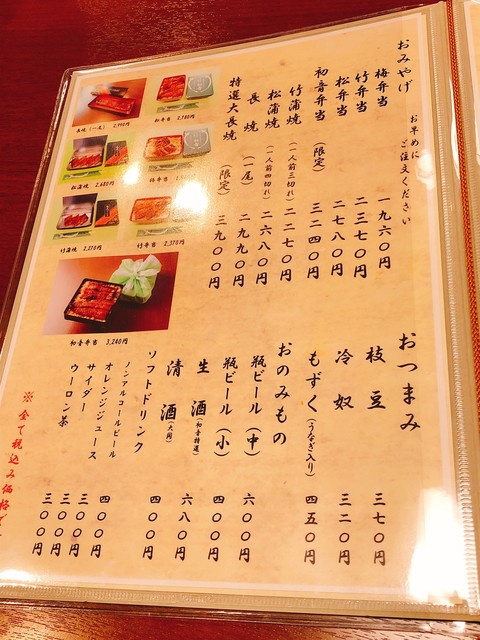 おみやげ
お早めに
ご注文ください
梅弁当 一九六〇円
竹弁当 二三七〇円
松弁当 二七八〇円
初音弁当 (限定) 三二四〇円
竹蒲焼 (一人前三切れ) 二二七〇円
松蒲焼 (一人前四切れ) 二六八〇円
長焼 (一尾) 二九九〇円
特選大長焼 (限定) 三九〇〇円
長焼(一尾) 2,990円
松弁当 2,780円
松蒲焼 2,680円
梅弁当
竹蒲焼 2,270円
竹弁当 2,370円
初音弁当 3,240円
おつまみ
枝豆 三七〇円
冷奴 三二〇円
もずく(うなぎ入り) 四五〇円
おのみもの
瓶ビール(中) 六〇〇円
瓶ビール(小) 四〇〇円
生酒(初音特選) 六八〇円
清酒(大関) 四〇〇円
ソフトドリンク
ノンアルコールビール 四〇〇円
オレンジジュース 三〇〇円
サイダー 三〇〇円
ウーロン茶 三〇〇円
※全て税込み価格で